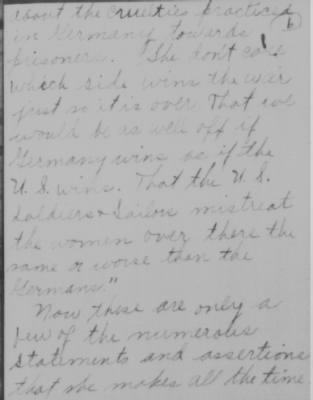 about the cruelties practiced
6
in Germany towards
prisoners. "She don't care
which side wins the war
just so it is over. That we
would be as well off if
Germany wins as if the
U. S. wins. That the U. S.
soldiers & Sailors mistreat
the women over there the
same or worse than the
Germans."
Now these are only a
few of the numerous
statements and assertions
that she makes all the time